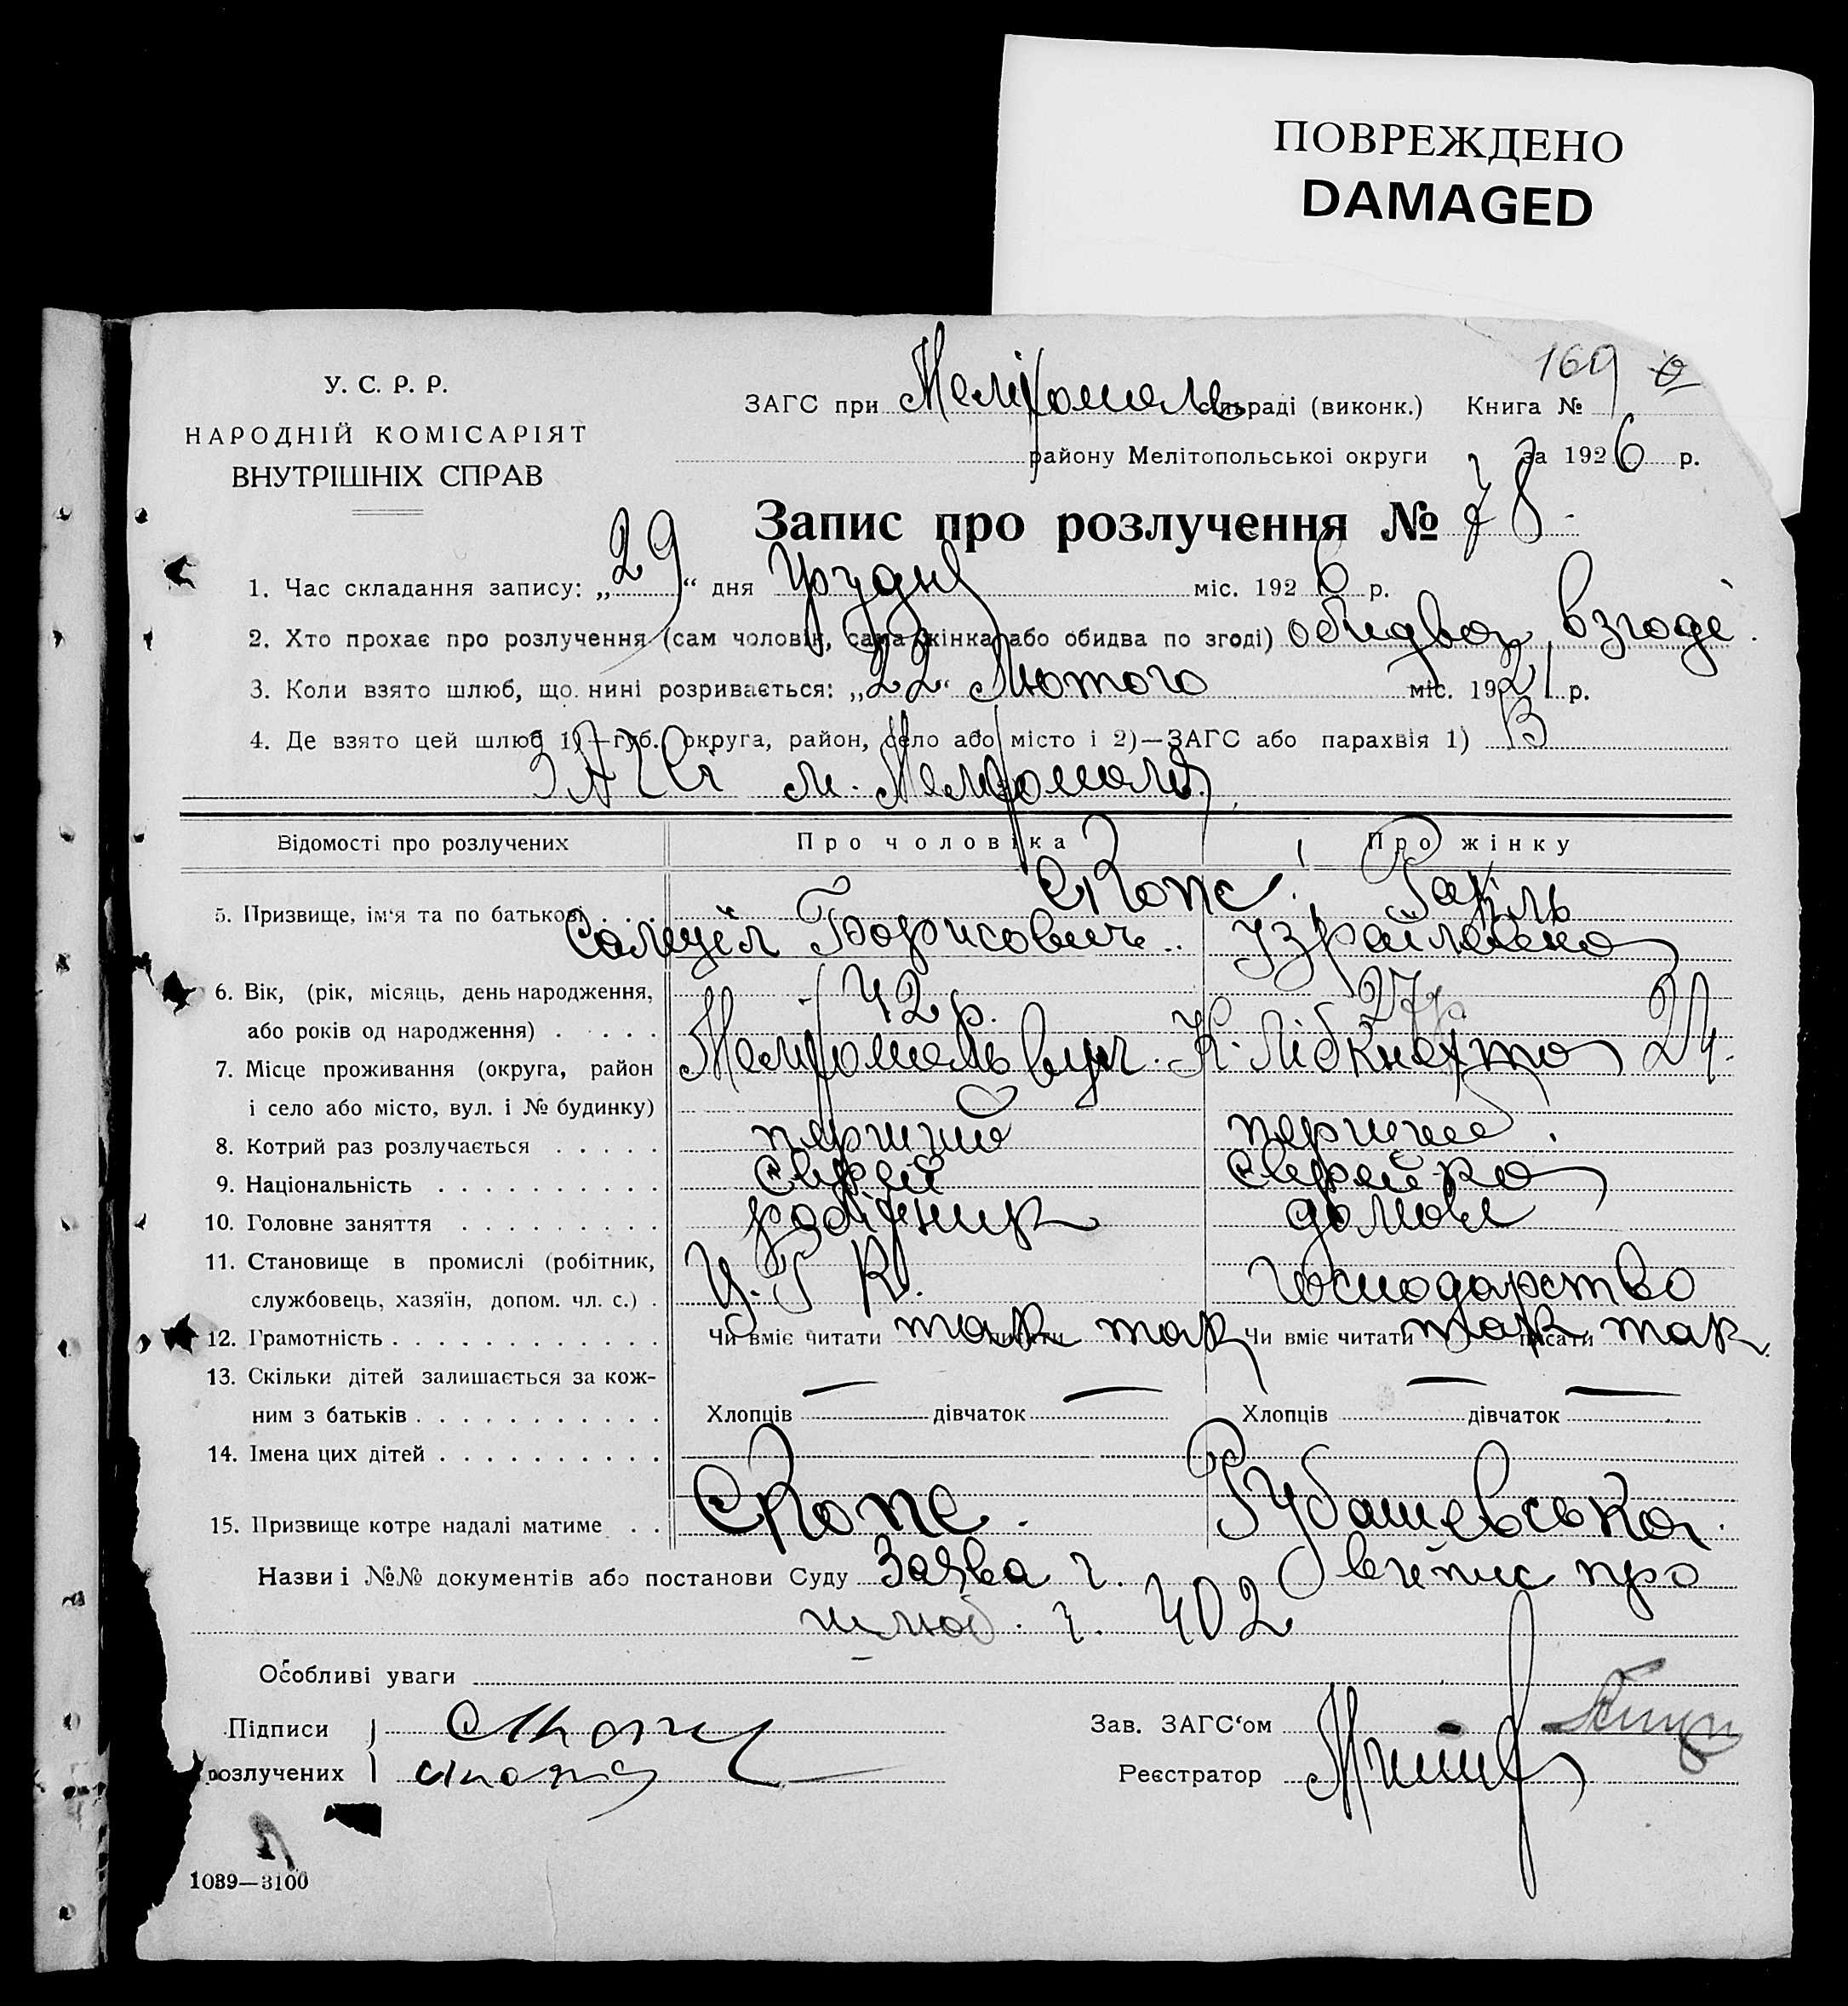 ПОВРЕЖДЕНО
DAMAGED
169
У. С. Р. Р.
НАРОДНІЙ КОМІСАРІЯТ
ВНУТРІШНІХ СПРАВ
ЗАГС при Мелітополь сільраді (виконк.) Книга №
району Мелітопольської округи за 1926 р.
Запис про розлучення № 78
1. Час складання запису: „29“ дня Грудня міс. 1926 р.
2. Хто прохає про розлучення (сам чоловік, сама жінка або обидва по згоді) обидва взгоді.
3. Коли взято шлюб, що нині розривається: „22“ Лютого міс. 1921 р.
4. Де взято цей шлюб 1)—губ. округа, район, село або місто і 2)—ЗАГС або парахвія 1) В
ЗАГСі м. Мелітополь.
Відомості про розлучених Про чоловіка Про жінку
5. Призвище, ім‘я та по батькові . . . Скопс. Рахіль
Самуїл Борисович .. Ізраїлевна
6. Вік, (рік, місяць, день народження, 42 р. 27 р.
або років од народження) . . . . .
7. Місце проживання (округа, район Мелітополь вул. К. Лібкнехта 24.
і село або місто, вул. і № будинку)
8. Котрий раз розлучається . . . . . перший перший.
9. Національність . . . . . . . . . . Єврей Єврейка
10. Головне заняття . . . . . . . . . робітник домове
11. Становище в промислі (робітник,
службовець, хазяїн, допом. чл. с.) . Ц. Р К. господарство
12. Грамотність . . . . . . . . . . . . Чи вміє читати так писати так Чи вміє читати так писати так.
13. Скільки дітей залишається за кож-
ним з батьків . . . . . . . . . . . Хлопців — дівчаток — Хлопців — дівчаток —
14. Імена цих дітей . . . . . . . . . .
15. Призвище котре надалі матиме . . Скопс. Рубашевська.
Назви і №№ документів або постанови Суду Заява і витис про
шлюб. ч. 402
Особливі уваги
Підписи
Зав. ЗАГС‘ом
розлучених
Реєстратор
1039—3100